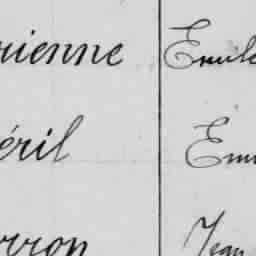 rienne Emile
éril Em
rron Jean